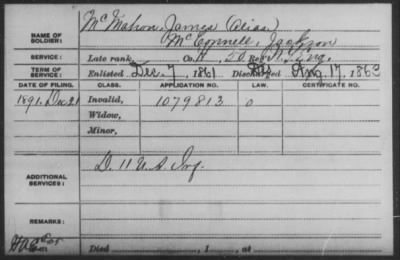 McMahon, James (Alias)
NAME OF SOLDIER: McConnell, Jackson
SERVICE: Late rank, Co. H, 50 Reg't Inf.
TERM OF SERVICE: Enlisted Dec. 7, 1861 Discharged Aug. 17, 1863
DATE OF FILING. CLASS. APPLICATION NO. LAW. CERTIFICATE NO.
1891, Dec 21 Invalid, 1079813 0
Widow,
Minor,
ADDITIONAL SERVICES: D. 11 U.S. Inf.
REMARKS:
Died , 1 , at